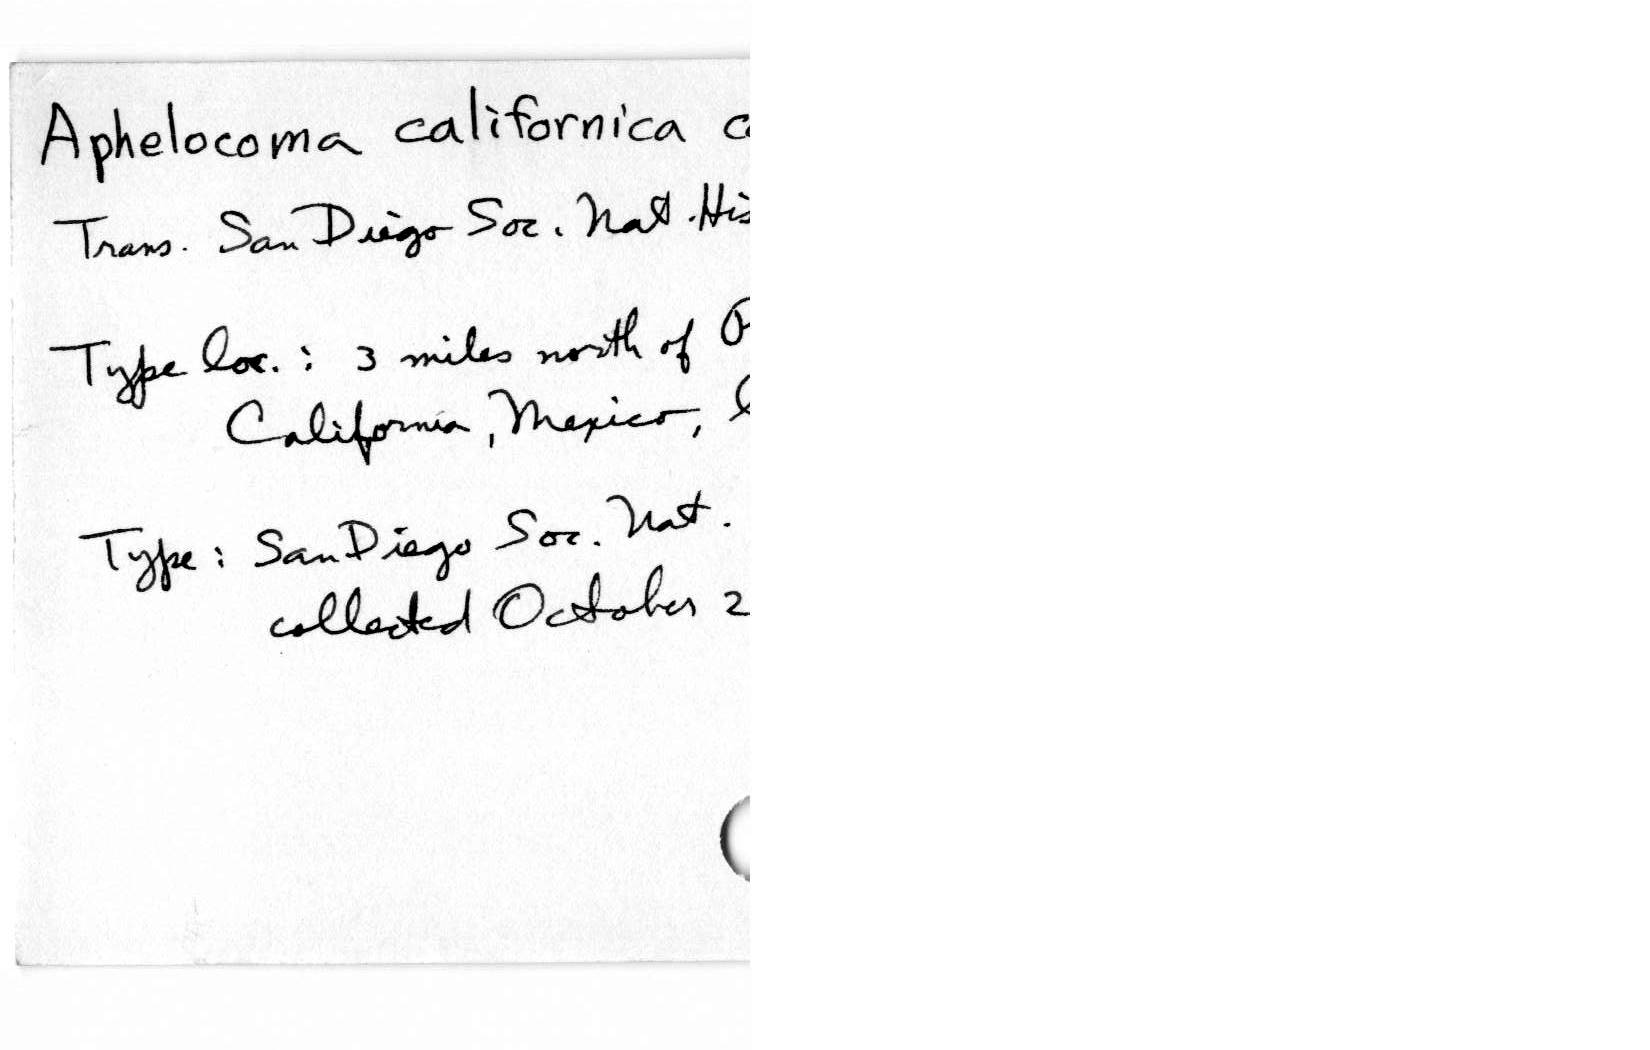 Aphelocoma californica
Trans. San Diego Soc. Nat. His
Type loc.: 3 miles north of
California, Mexico,
Type: San Diego Soc. Nat.
collected October 2